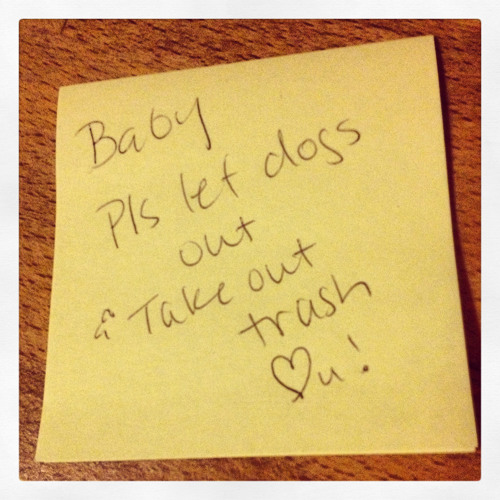 Baby
Pls let dogs
out
& Take out
trash
♡u!